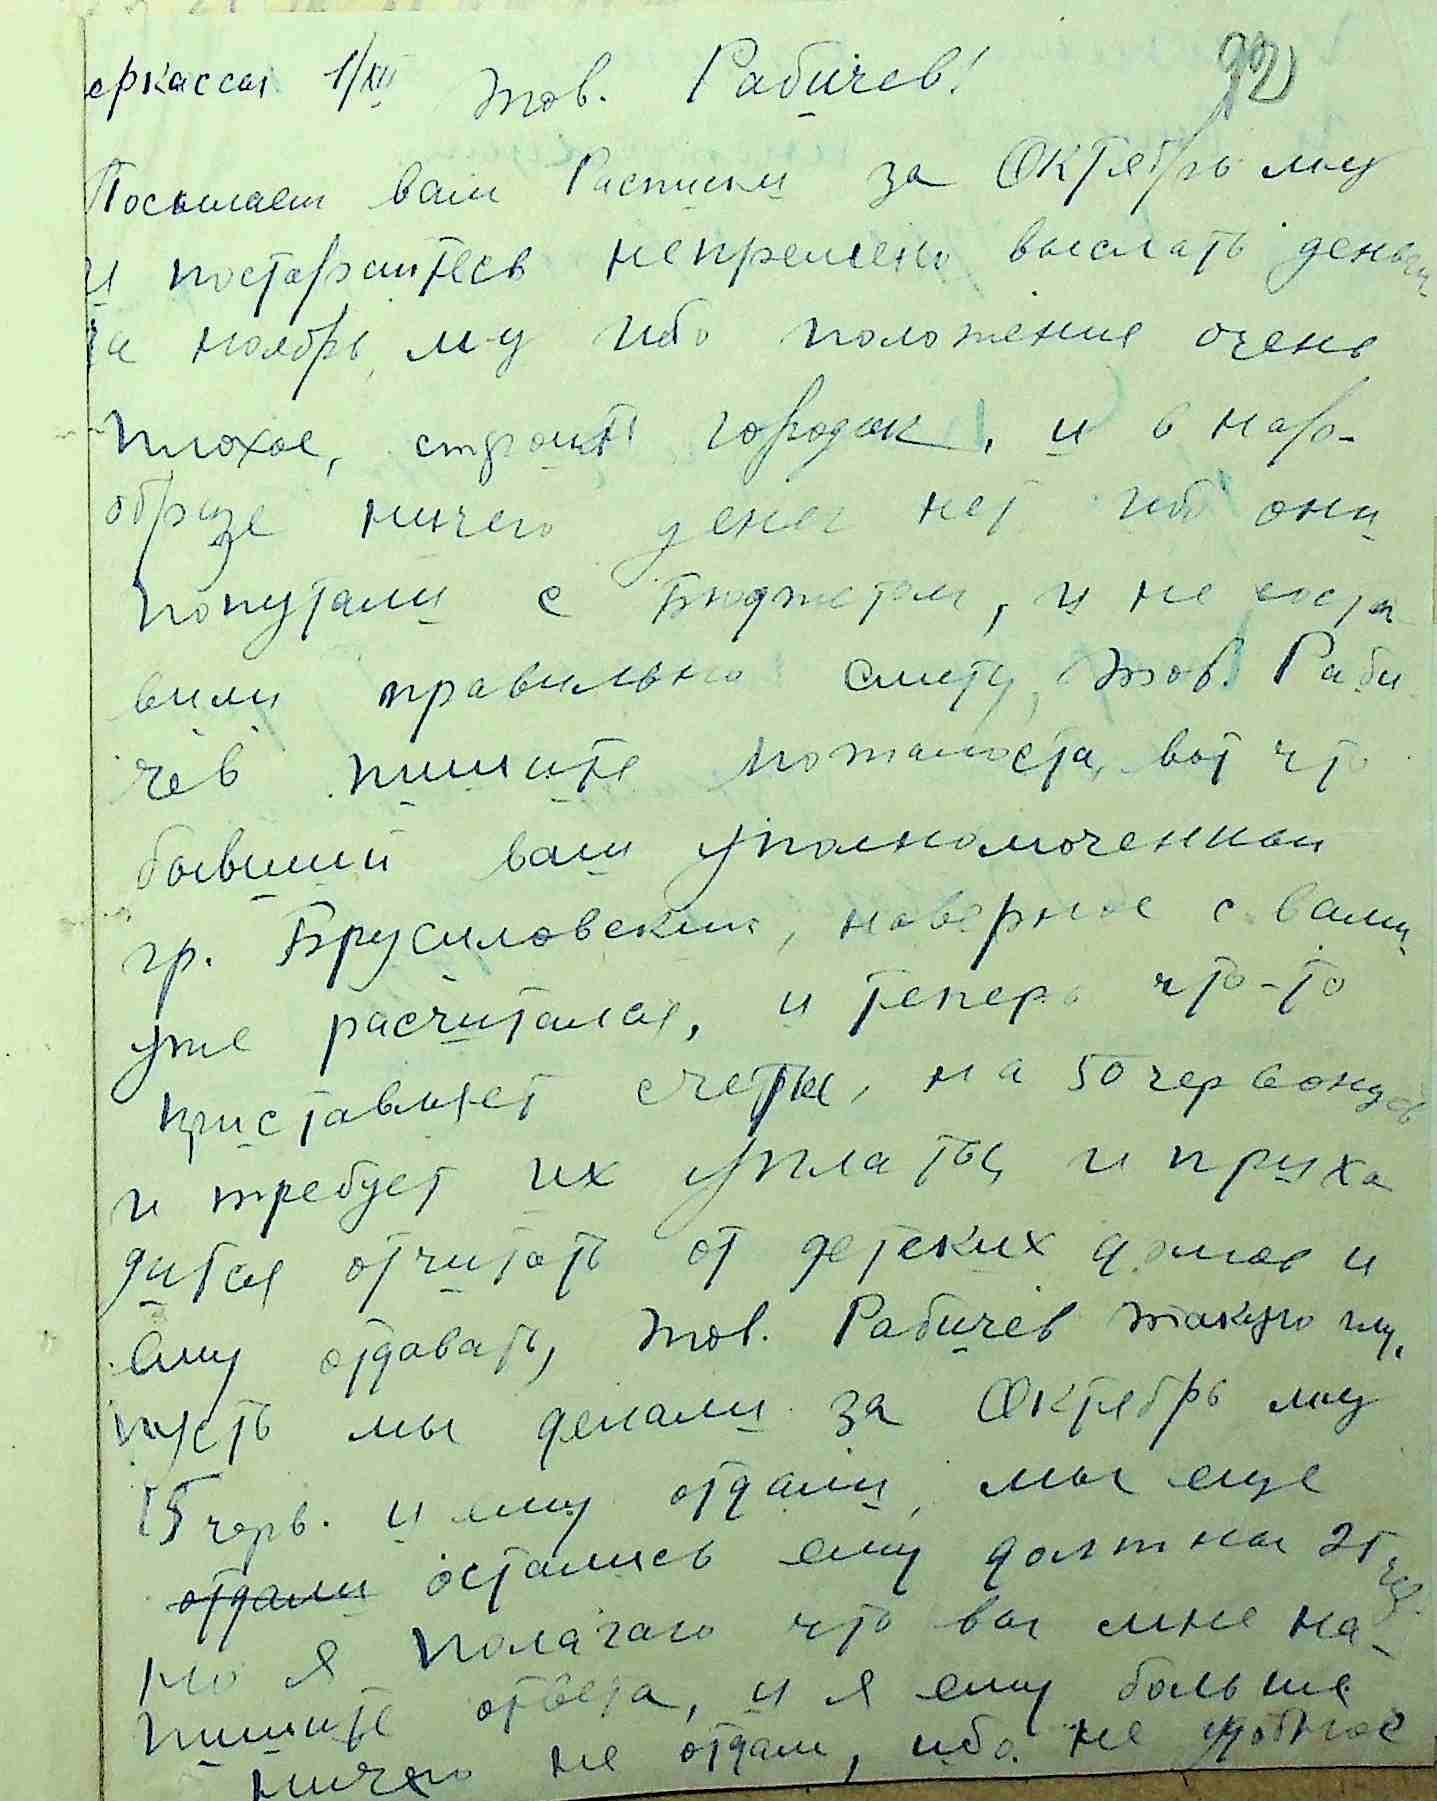 еркассы 1/XII Тов. Рабичев! 92
Посылаем вам Расписки за Октябрь м-ц
и постарайтесь непременно выслать деньги
за ноябрь м-ц ибо положение очень
плохое, строит городок, и в нар-
образе ничего денег нет ибо они
попутали с Бюджетом, и не соста
вили правильно смету, тов. Раби
чев пишите пожалоста, вот что
бывший ваш уполномоченный
гр. Брусиловский, наверное с вами
уже расчитался, и теперь что-то
приставляет счеты, на 50 червонцев
и требует их уплаты и приха
дится отчитать от детских домов и
ему отдавать, тов. Рабичев такую глу
пость мы делали за Октябрь м-ц
15 черв. и ему отдали, мы еще
отдали остались ему должны 25 чер.
но я полагаю что вы мне на-
пишите ответа, и я ему больше
ничего не отдам, ибо не удобное